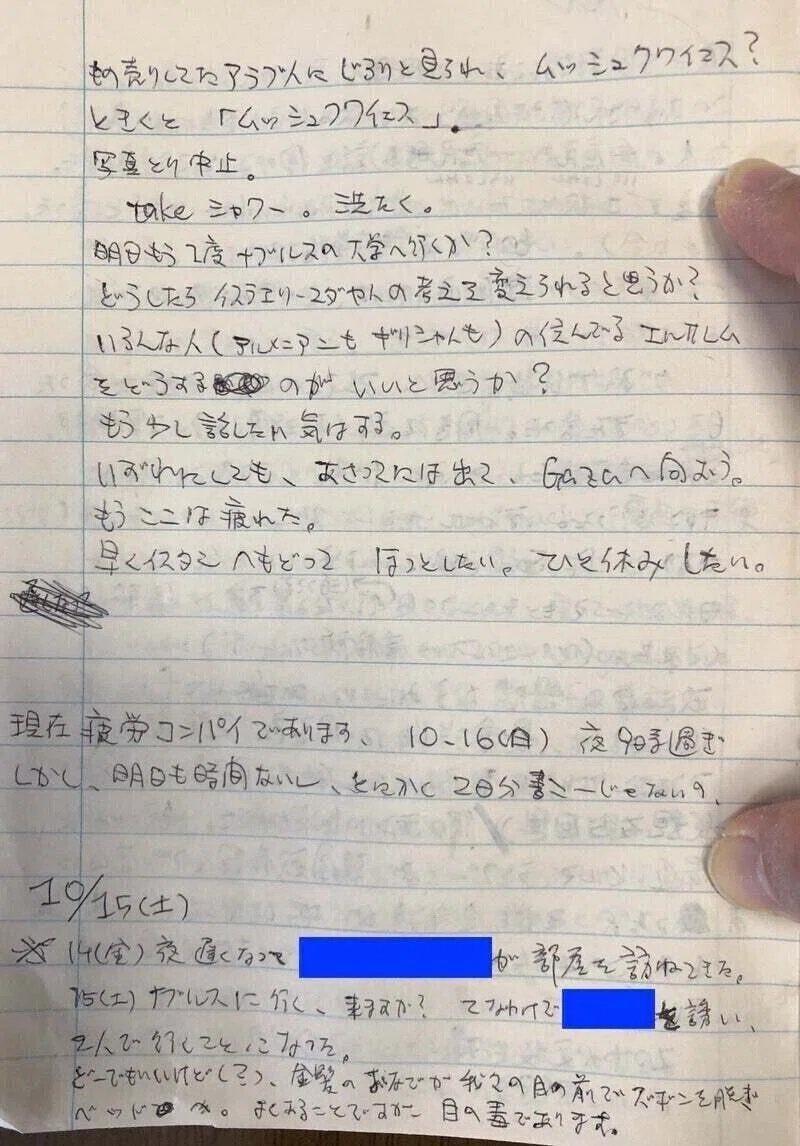 もの売りしてたアラブ人にじろりと見られ、ムッシュクワイエス？
ときくと「ムッシュクワイエス」。
写真とり中止。
take シャワー。洗たく。
明日もう1度ナブルスの大学へ行くか？
どうしたらイスラエリーユダヤ人の考えを変えられると思うか？
いろんな人(アルメニアンも ギリシャんも)の住んでるエルサレム
をどうする のがいいと思うか？
もう少し話したい気はする。
いずれにしても、あさってには出て、Gazaへ向おう。
もうここは疲れた。
早くイスタンへもどって ほっとしたい。ひと休みしたい。
現在疲労コンパイであります、10.16(日) 夜9時過ぎ
しかし、明日も時間ないし、とにかく2日分書こーじゃないの、
10/15(土)
※ 14(金)夜遅くなって が部屋を訪ねてきた。
15(土)ナブルスに行く、来ますか？ てなわけで を誘い、
で行くことになった。
どーでもいいけど(ミ)、金髪の おなごが我々の目の前でズボンを脱ぎ
ベッド へ。よくあることですが 目の毒であります。